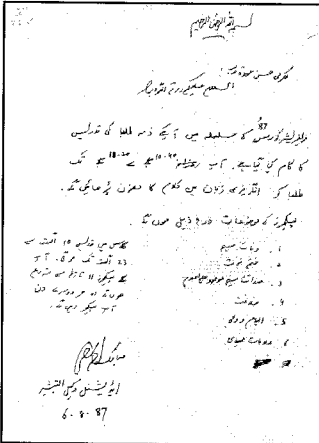 بسم اللہ الرحمن الرحیم
مکرمی حسن عودہ صاحب
السلام علیکم ورحمۃ اللہ وبرکاتہ
87 کے سلسلہ میں آپکے ذمہ طلبا کی تدریس
کا کام کیا گیا ہے۔ آپ 10-40 سے تک
طلبا کو انگریزی زبان میں کلام کا مضمون پڑھائیں گے۔
لیکچرز کے موضوعات درج ذیل ہوں گے
1. وفات مسیح
2. ختم نبوت
3. صداقت مسیح موعود علیہ السلام
4. خلافت
5. الہام و وحی
6.
کلاس میں تدریس 10 اگست سے
23 اگست تک ہو گی۔ آپ
کے لیکچرز 11 تاریخ سے شروع
ہوں گے اور ہر دوسرے دن
آپ لیکچر دیں گے۔
ایڈیشنل وکیل التبشیر
6-8-87